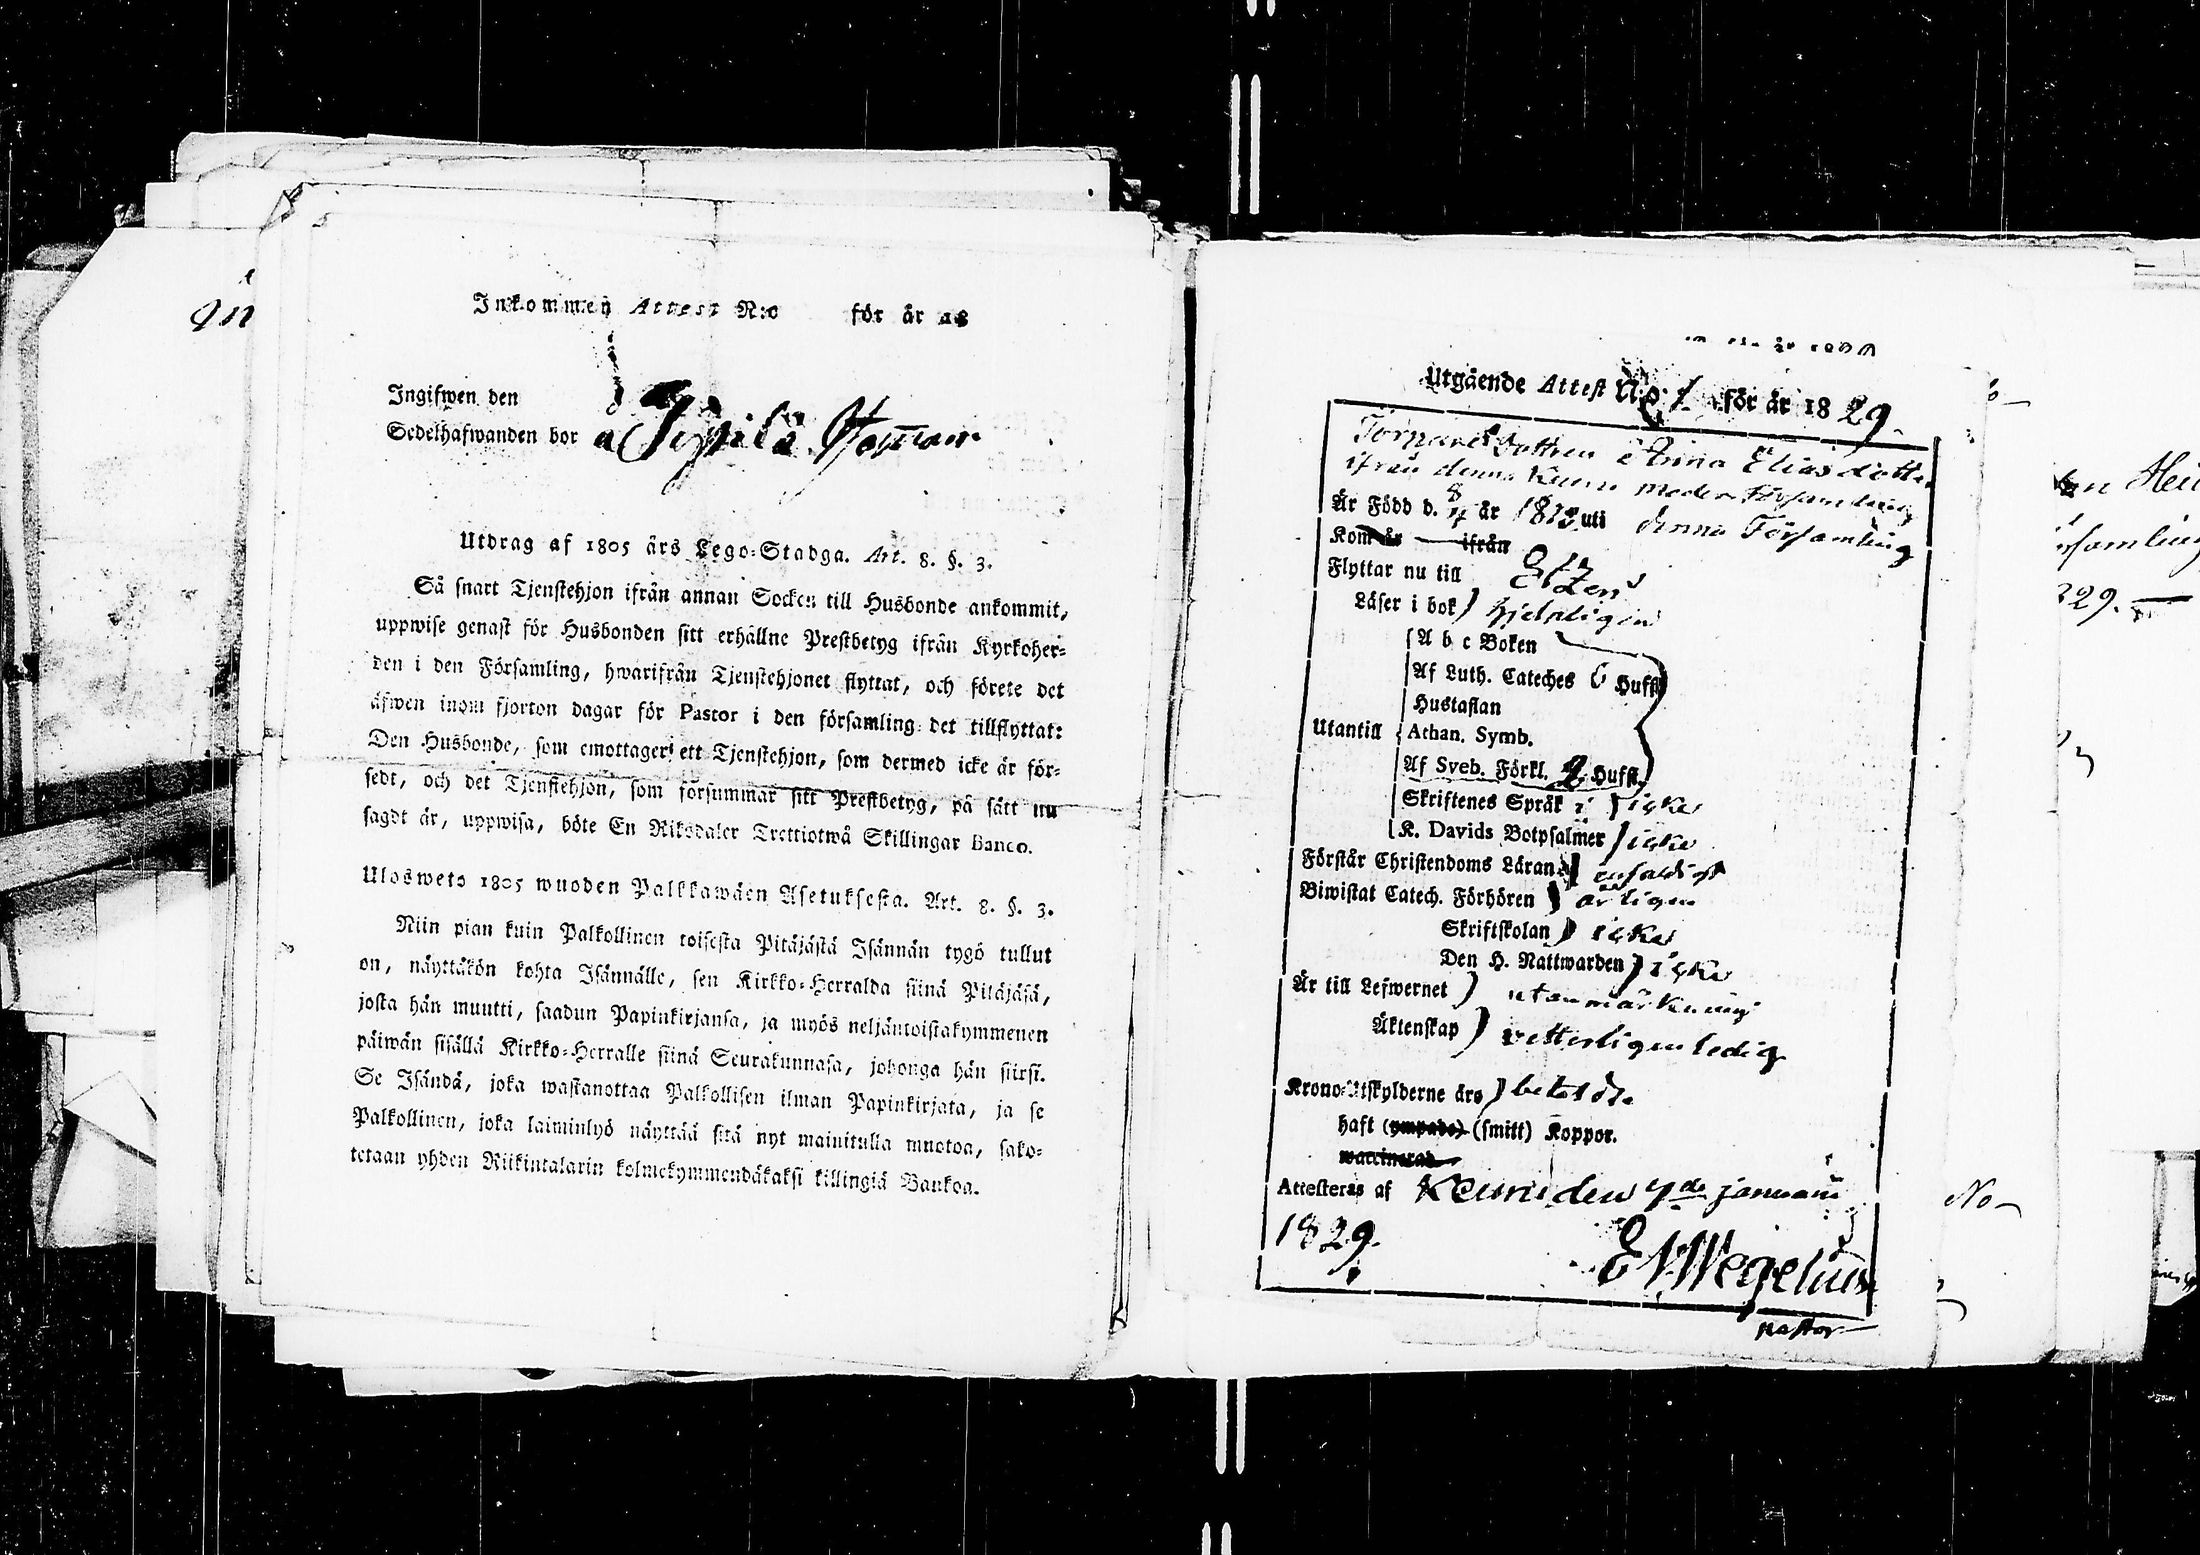 Inkommen Attest N:o för år 18
Ingifwen den
Sedelhafwanden bor a Sipilä Hemman
Utdrag af 1805 års Lego-Stadga. Art. 8. §. 3.
Så snart Tjenstehjon ifrån annan Socken till Husbonde ankommit,
uppwise genast för Husbonden sitt erhållne Prestbetyg ifrån Kyrkoher-
den i den Församling, hwarifrån Tjenstehjonet flyttat, och förete det
äfwen inom fjorton dagar för Pastor i den församling det tillflyttat:
Den Husbonde, som emottager ett Tjenstehjon, som dermed icke är för-
sedt, och det Tjenstehjon, som försummar sitt Prestbetyg, på sätt nu
sagdt är, uppwisa, böte En Riksdaler Trettiotwå Skillingar Banco.
Uloswets 1805 wuoden Palkkawäen Asetuksesta. Art. 8. §. 3.
Niin pian kuin Palkollinen toisesta Pitäjästä Isännän tygö tullut
on, näyttäkön kohta Isännälle, sen Kirkko-Herralda siinä Pitäjäsä,
josta hän muutti, saadun Papinkirjansa, ja myös neljäntoistakymmenen
päiwän sisällä Kirkko-Herralle siinä Seurakunnasa, johonga hän siirsi.
Se Isändä, joka wastanottaa Palkollisen ilman Papinkirjata, ja se
Palkollinen, joka laiminlyö näyttää sitä nyt mainitulla muotoa, sako-
tetaan yhden Riikintalarin kolmekymmendäkaksi killingiä Bankoa.
Utgående Attest N:o 1 för år 1829.
Torpare Dottren Anna Eliasdotter
ifrån denna Keuru moder Församling
Är Född d. 8/4 år 181 uti denna Församling
Kom år — ifrån
Flyttar nu till
Läser i bok) hjelpligen
A b c Boken
Af Luth. Cateches 6 Hufst.
Hustaflan
Utantill Athan. Symb.
Af Sveb. Förkl. 2 Hufst.
Skriftenes Språk ) icke
K. Davids Botpsalmer ) icke
Förstår Christendoms Läran ) enfaldigt
Biwistat Catech. Förhören ) årligen
Skriftskolan ) icke
Den H. Nattwarden ) icke
Är till Lefwernet ) utan märkning
Äktenskap ) vetterligen ledig
Krono-Utskylderne äro ) betalde.
haft (ympade) (smitt) Koppor.
waccinerad
Attesteras af Keuru den 4de januarii
1829.
E N Wegelius
pastor